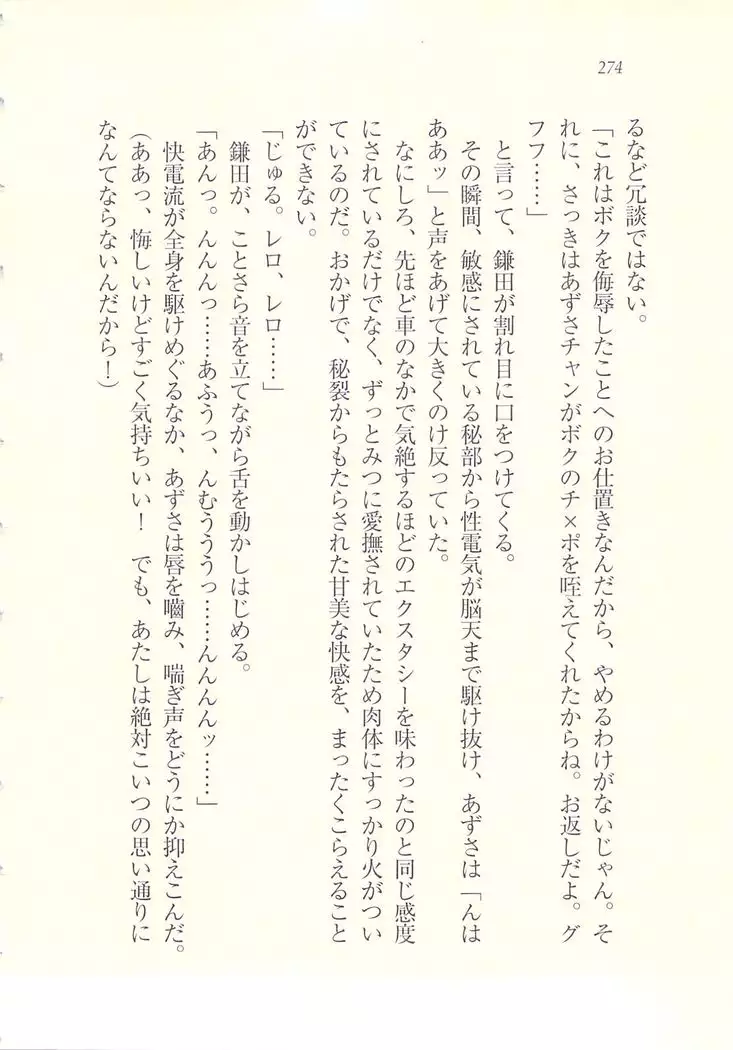 274
るなど冗談ではない。
「これはボクを侮辱したことへのお仕置きなんだから、やめるわけがないじゃん。そ
れに、さっきはあずさチャンがボクのチ×ポを咥えてくれたからね。お返しだよ。グ
フフ……」
と言って、鎌田が割れ目に口をつけてくる。
その瞬間、敏感にされている秘部から性電気が脳天まで駆け抜け、あずさは「んは
ああッ」と声をあげて大きくのけ反っていた。
なにしろ、先ほど車のなかで気絶するほどのエクスタシーを味わったのと同じ感度
にされているだけでなく、ずっとみつに愛撫されていたため肉体にすっかり火がつい
ているのだ。おかげで、秘裂からもたらされた甘美な快感を、まったくこらえること
ができない。
「じゅる。レロ、レロ……」
鎌田が、ことさら音を立てながら舌を動かしはじめる。
「あんっ。んんんっ……あふうっ、んむううっ……んんんんッ……」
快電流が全身を駆けめぐるなか、あずさは唇を嚙み、喘ぎ声をどうにか抑えこんだ。
（ああっ、悔しいけどすごく気持ちいい！　でも、あたしは絶対こいつの思い通りに
なんてならないんだから！）